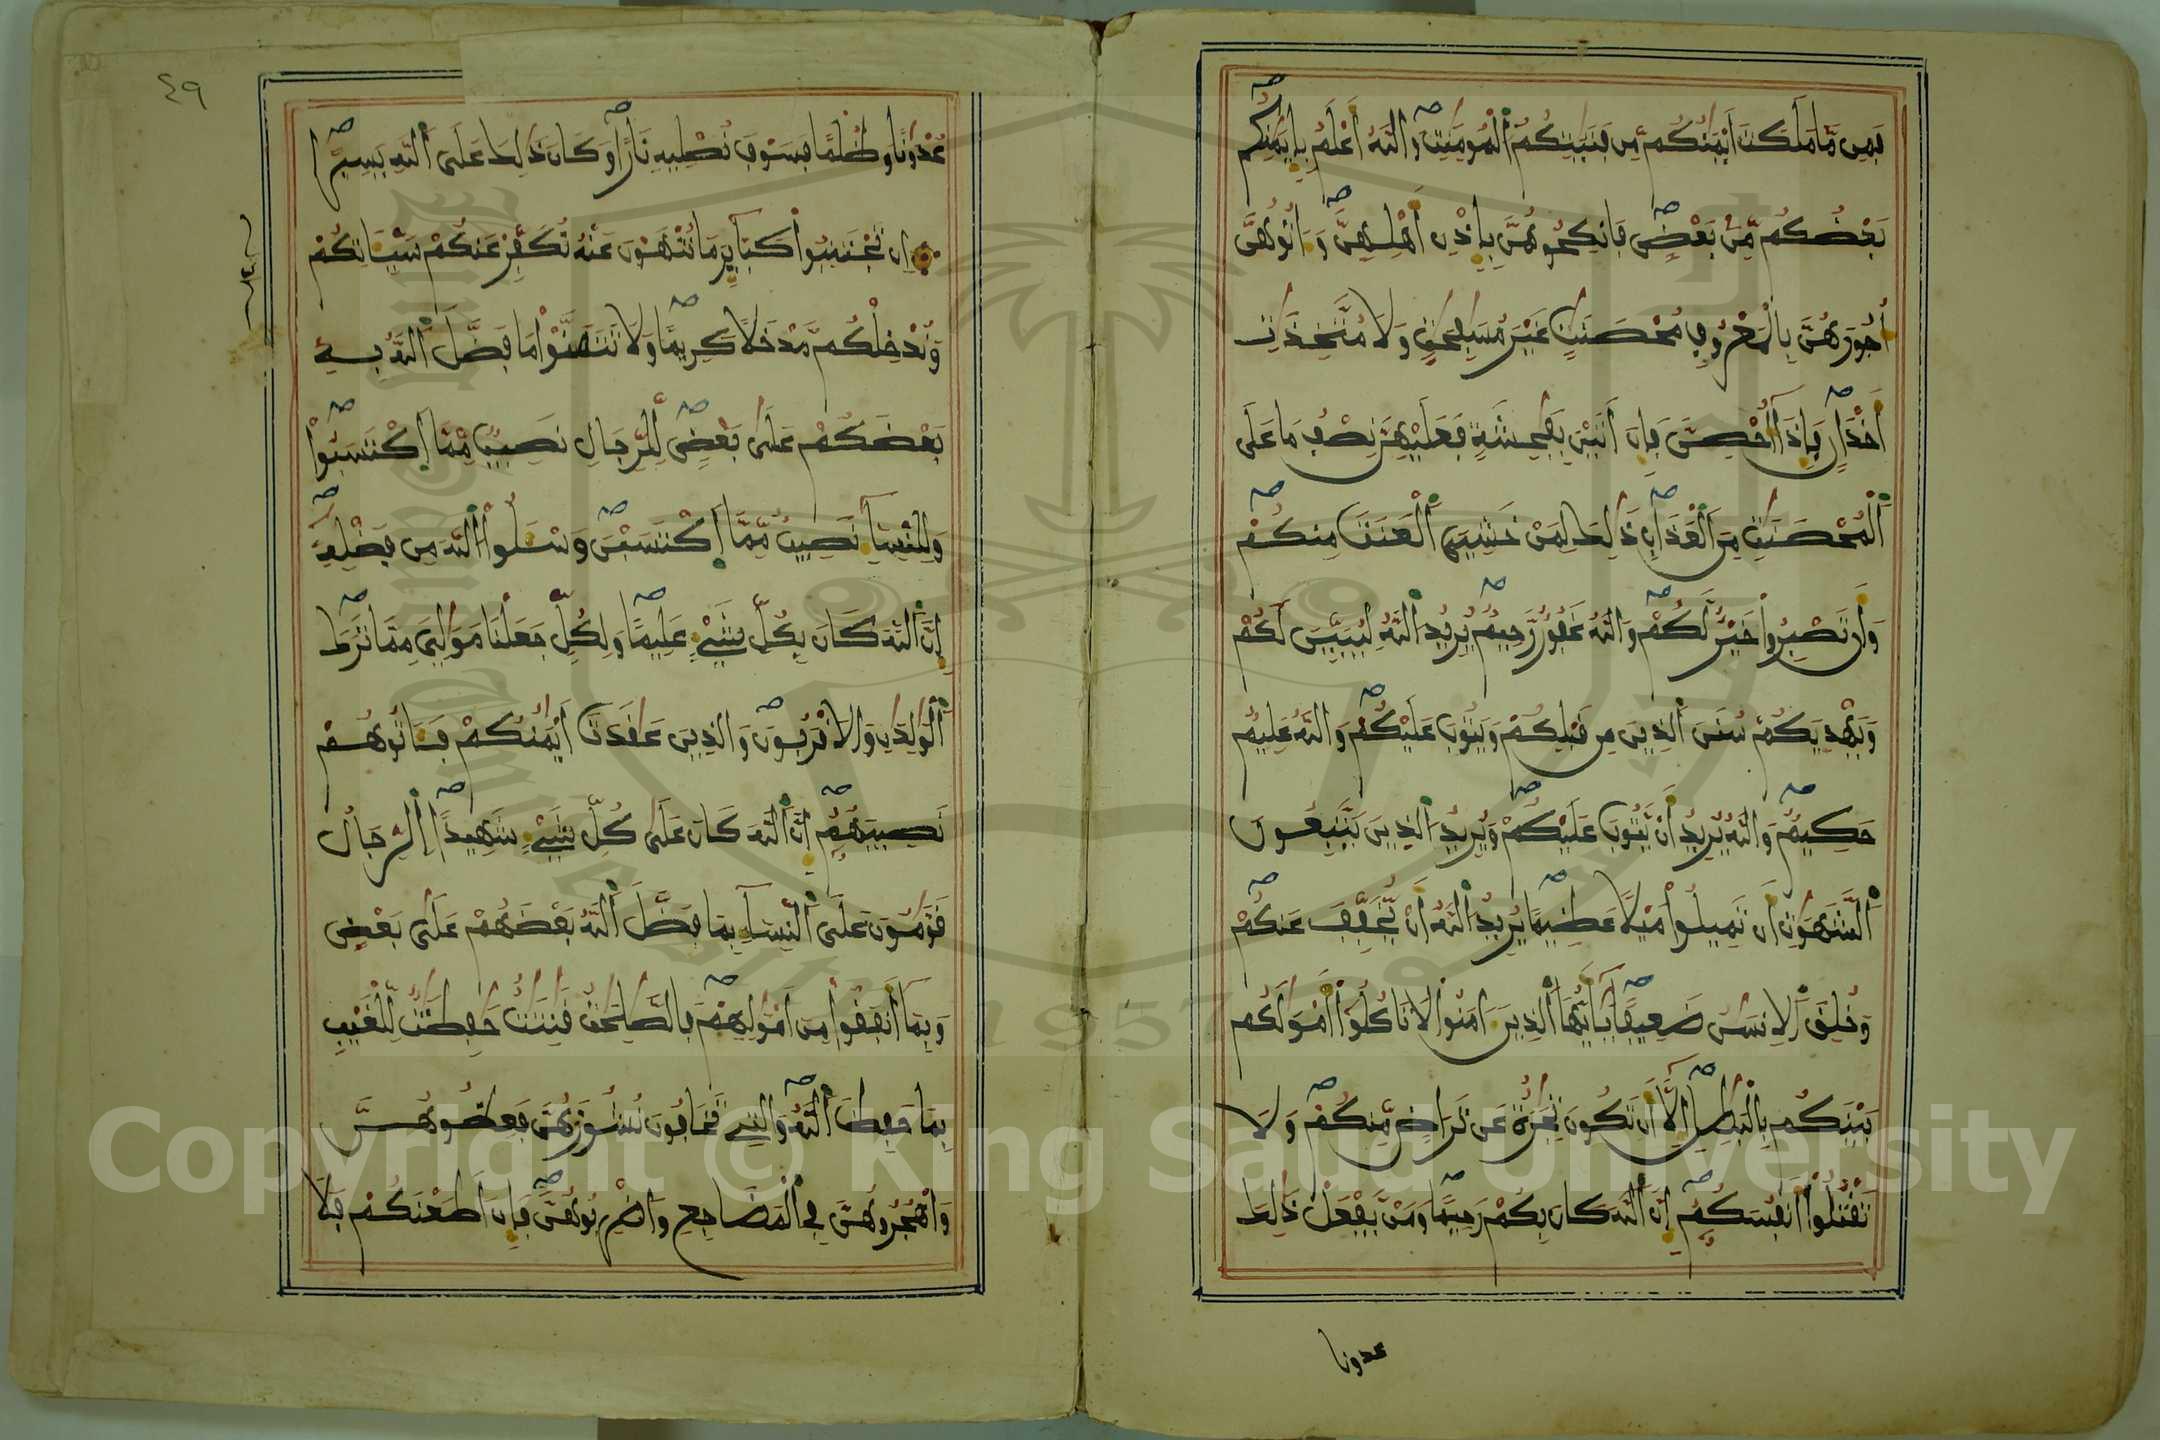 فَمِن مَّا مَلَكَتَ اَيْمَٰنُكُم مِّن فَتَيَٰتِكُمُ اُ۬لْمُومِنَٰتِۖ وَاللَّهُ أَعْلَمُ بِإِيمَٰنِكُمۖ
بَعْضُكُم مِّنۢ بَعْضٖۖ فَانكِحُوهُنَّ بِإِذْنِ أَهْلِهِنَّۖ وَءَاتُوهُنَّ
أُجُورَهُنَّ بِالْمَعْرُوفِ مُحْصَنَٰتٍ غَيْرَ مُسَٰفِحَٰتٖ وَلَا مُتَّخِذَٰتِ
أَخْدَانٖۖ فَإِذَآ أُحْصِنَّ فَإِنَ اَتَيْنَ بِفَٰحِشَةٖ فَعَلَيْهِنَّ نِصْفُ مَا عَلَى
اَ۬لْمُحْصَنَٰتِ مِنَ اَ۬لْعَذَابِۖ ذَٰلِكَ لِمَنْ خَشِيَ اَ۬لْعَنَتَ مِنكُمْۖ
وَأَن تَصْبِرُواْ خَيْرٞ لَّكُمْۖ وَاللَّهُ غَفُورٞ رَّحِيمٞۖ يُرِيدُ اُ۬للَّهُ لِيُبَيِّنَ لَكُمْ
وَيَهْدِيَكُمْ سُنَنَ اَ۬لذِينَ مِن قَبْلِكُمْ وَيَتُوبَ عَلَيْكُمْۖ وَاللَّهُ عَلِيمٌ
حَكِيمٞۖ وَاللَّهُ يُرِيدُ أَنْ يَّتُوبَ عَلَيْكُمْۖ وَيُرِيدُ اُ۬لذِينَ يَتَّبِعُونَ
اَ۬لشَّهَوَٰتِ أَن تَمِيلُواْ مَيْلًا عَظِيمٗاۖ يُرِيدُ اُ۬للَّهُ أَنْ يُّخَفِّفَ عَنكُمْۖ
وَخُلِقَ اَ۬لِانسَٰنُ ضَعِيفٗاۖ يَٰٓأَيُّهَا اَ۬لذِينَ ءَامَنُواْ لَا تَاكُلُوٓاْ أَمْوَٰلَكُم
بَيْنَكُم بِالْبَٰطِلِۖ إِلَّآ أَن تَكُونَ تِجَٰرَةٌ عَن تَرَاضٖ مِّنكُمْۖ وَلَا
تَقْتُلُوٓاْ أَنفُسَكُمُۥٓۖ إِنَّ اَ۬للَّهَ كَانَ بِكُمْ رَحِيمٗا وَمَنْ يَّفْعَلْ ذَٰلِكَ
عدونا
٤٩
عُدْوَٰنٗا وَظُلْمٗا فَسَوْفَ نُصْلِيهِ نَارٗا وَكَانَ ذَٰلِكَ عَلَى اَ۬للَّهِ يَسِيراًۖ
إِن تَجْتَنِبُواْ كَبَآئِرَ مَا تُنْهَوْنَ عَنْهُ نُكَفِّرْ عَنكُمْ سَيِّـَٔاتِكُمْ
وَنُدْخِلْكُم مَّدْخَلٗا كَرِيمٗاۖ وَلَا تَتَمَنَّوْاْ مَا فَضَّلَ اَ۬للَّهُ بِهِۦ
بَعْضَكُمْ عَلَىٰ بَعْضٖۖ لِّلرِّجَالِ نَصِيبٞ مِّمَّا اَ۪كْتَسَبُواْۖ
وَلِلنِّسَآءِ نَصِيبٞ مِّمَّا اَ۪كْتَسَبْنَۖ وَسْـَٔلُواْ اُ۬للَّهَ مِن فَضْلِهِۦٓۖ
إِنَّ اَ۬للَّهَ كَانَ بِكُلِّ شَيْءٍ عَلِيمٗاۖ وَلِكُلّٖ جَعَلْنَا مَوَٰلِيَ مِمَّا تَرَكَ
اَ۬لْوَٰلِدَٰنِ وَالَاقْرَبُونَۖ وَالذِينَ عَٰقَدَتَ اَيْمَٰنُكُمْ فَـَٔاتُوهُمْ
نَصِيبَهُمُۥٓۖ إِنَّ اَ۬للَّهَ كَانَ عَلَىٰ كُلِّ شَيْءٖ شَهِيداًۖ اِ۬لرِّجَالُ
قَوَّٰمُونَ عَلَى اَ۬لنِّسَآءِ بِمَا فَضَّلَ اَ۬للَّهُ بَعْضَهُمْ عَلَىٰ بَعْضٖ
وَبِمَآ أَنفَقُواْ مِنَ اَمْوَٰلِهِمْۖ فَالصَّٰلِحَٰتُ قَٰنِتَٰتٌ حَٰفِظَٰتٞ لِّلْغَيْبِ
بِمَا حَفِظَ اَ۬للَّهُۖ وَالتِے تَخَافُونَ نُشُوزَهُنَّ فَعِظُوهُنَّ
وَاهْجُرُوهُنَّ فِے اِ۬لْمَضَاجِعِ وَاضْرِبُوهُنَّۖ فَإِنَ اَطَعْنَكُمْ فَلَا
Copyright © King Saud University
1957